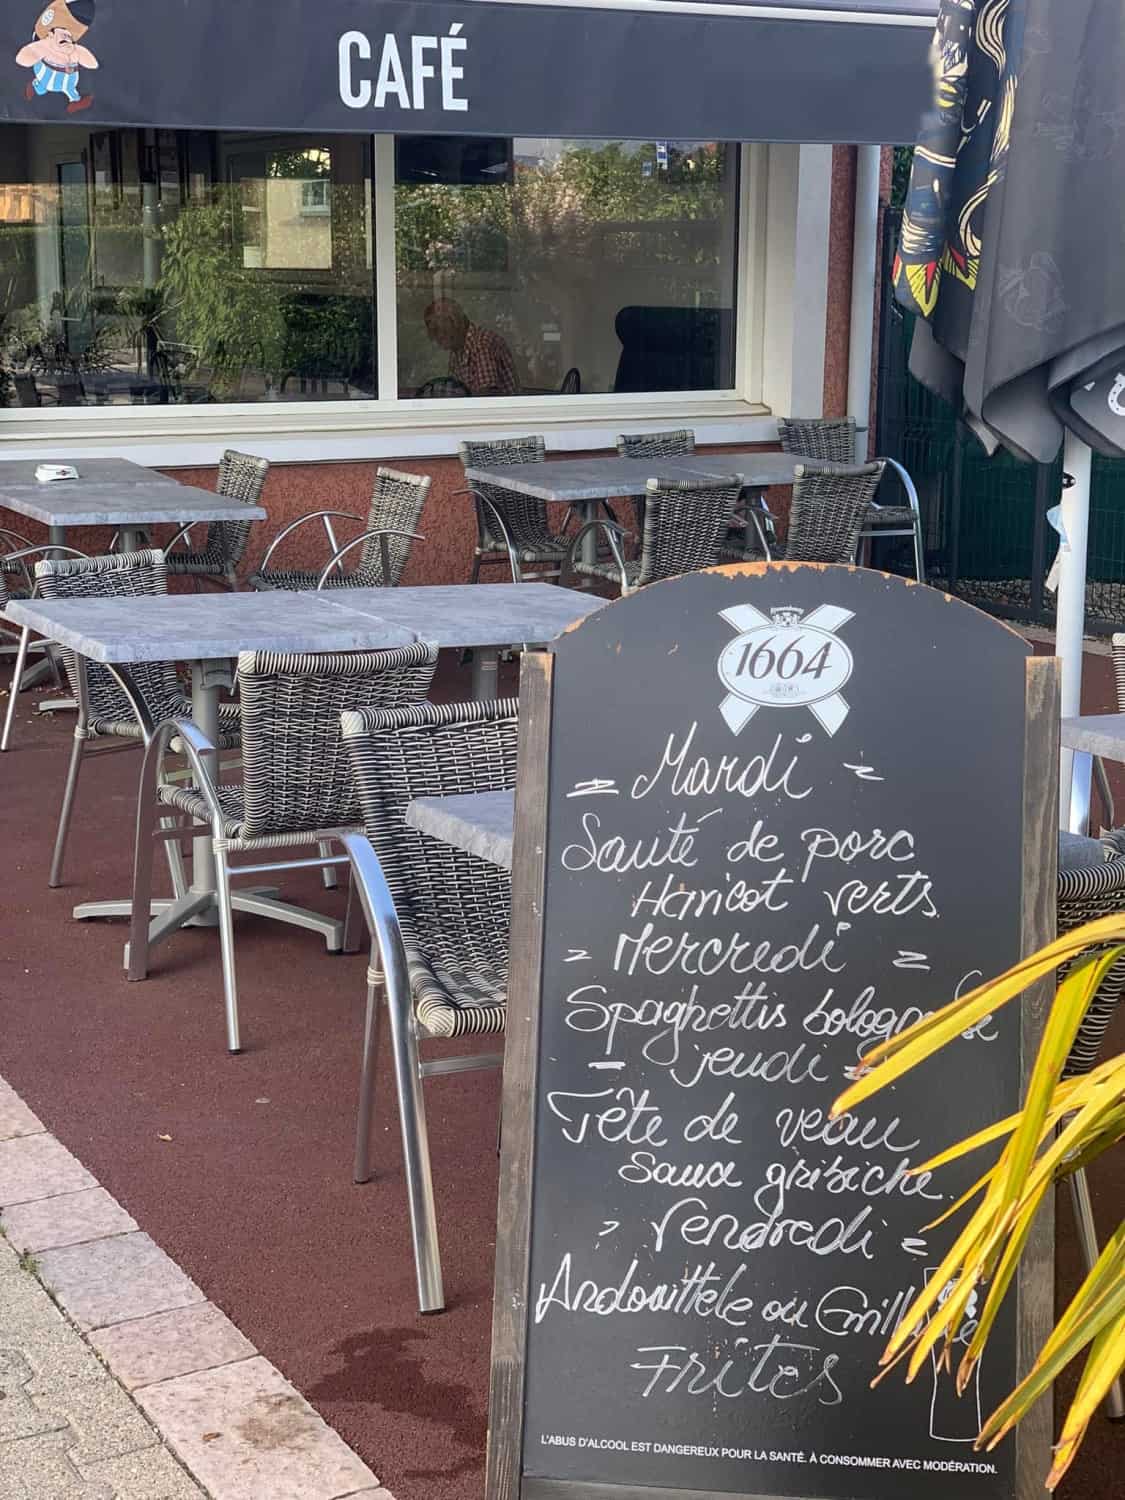 CAFÉ
1664
= Mardi =
Sauté de porc
Haricot verts
= Mercredi =
Spaghettis bolognaise
= jeudi =
Tête de veau
Saux gribiche
= Vendredi =
Andouillele ou
Frites
L'ABUS D'ALCOOL EST DANGEREUX POUR LA SANTÉ. À CONSOMMER AVEC MODÉRATION.